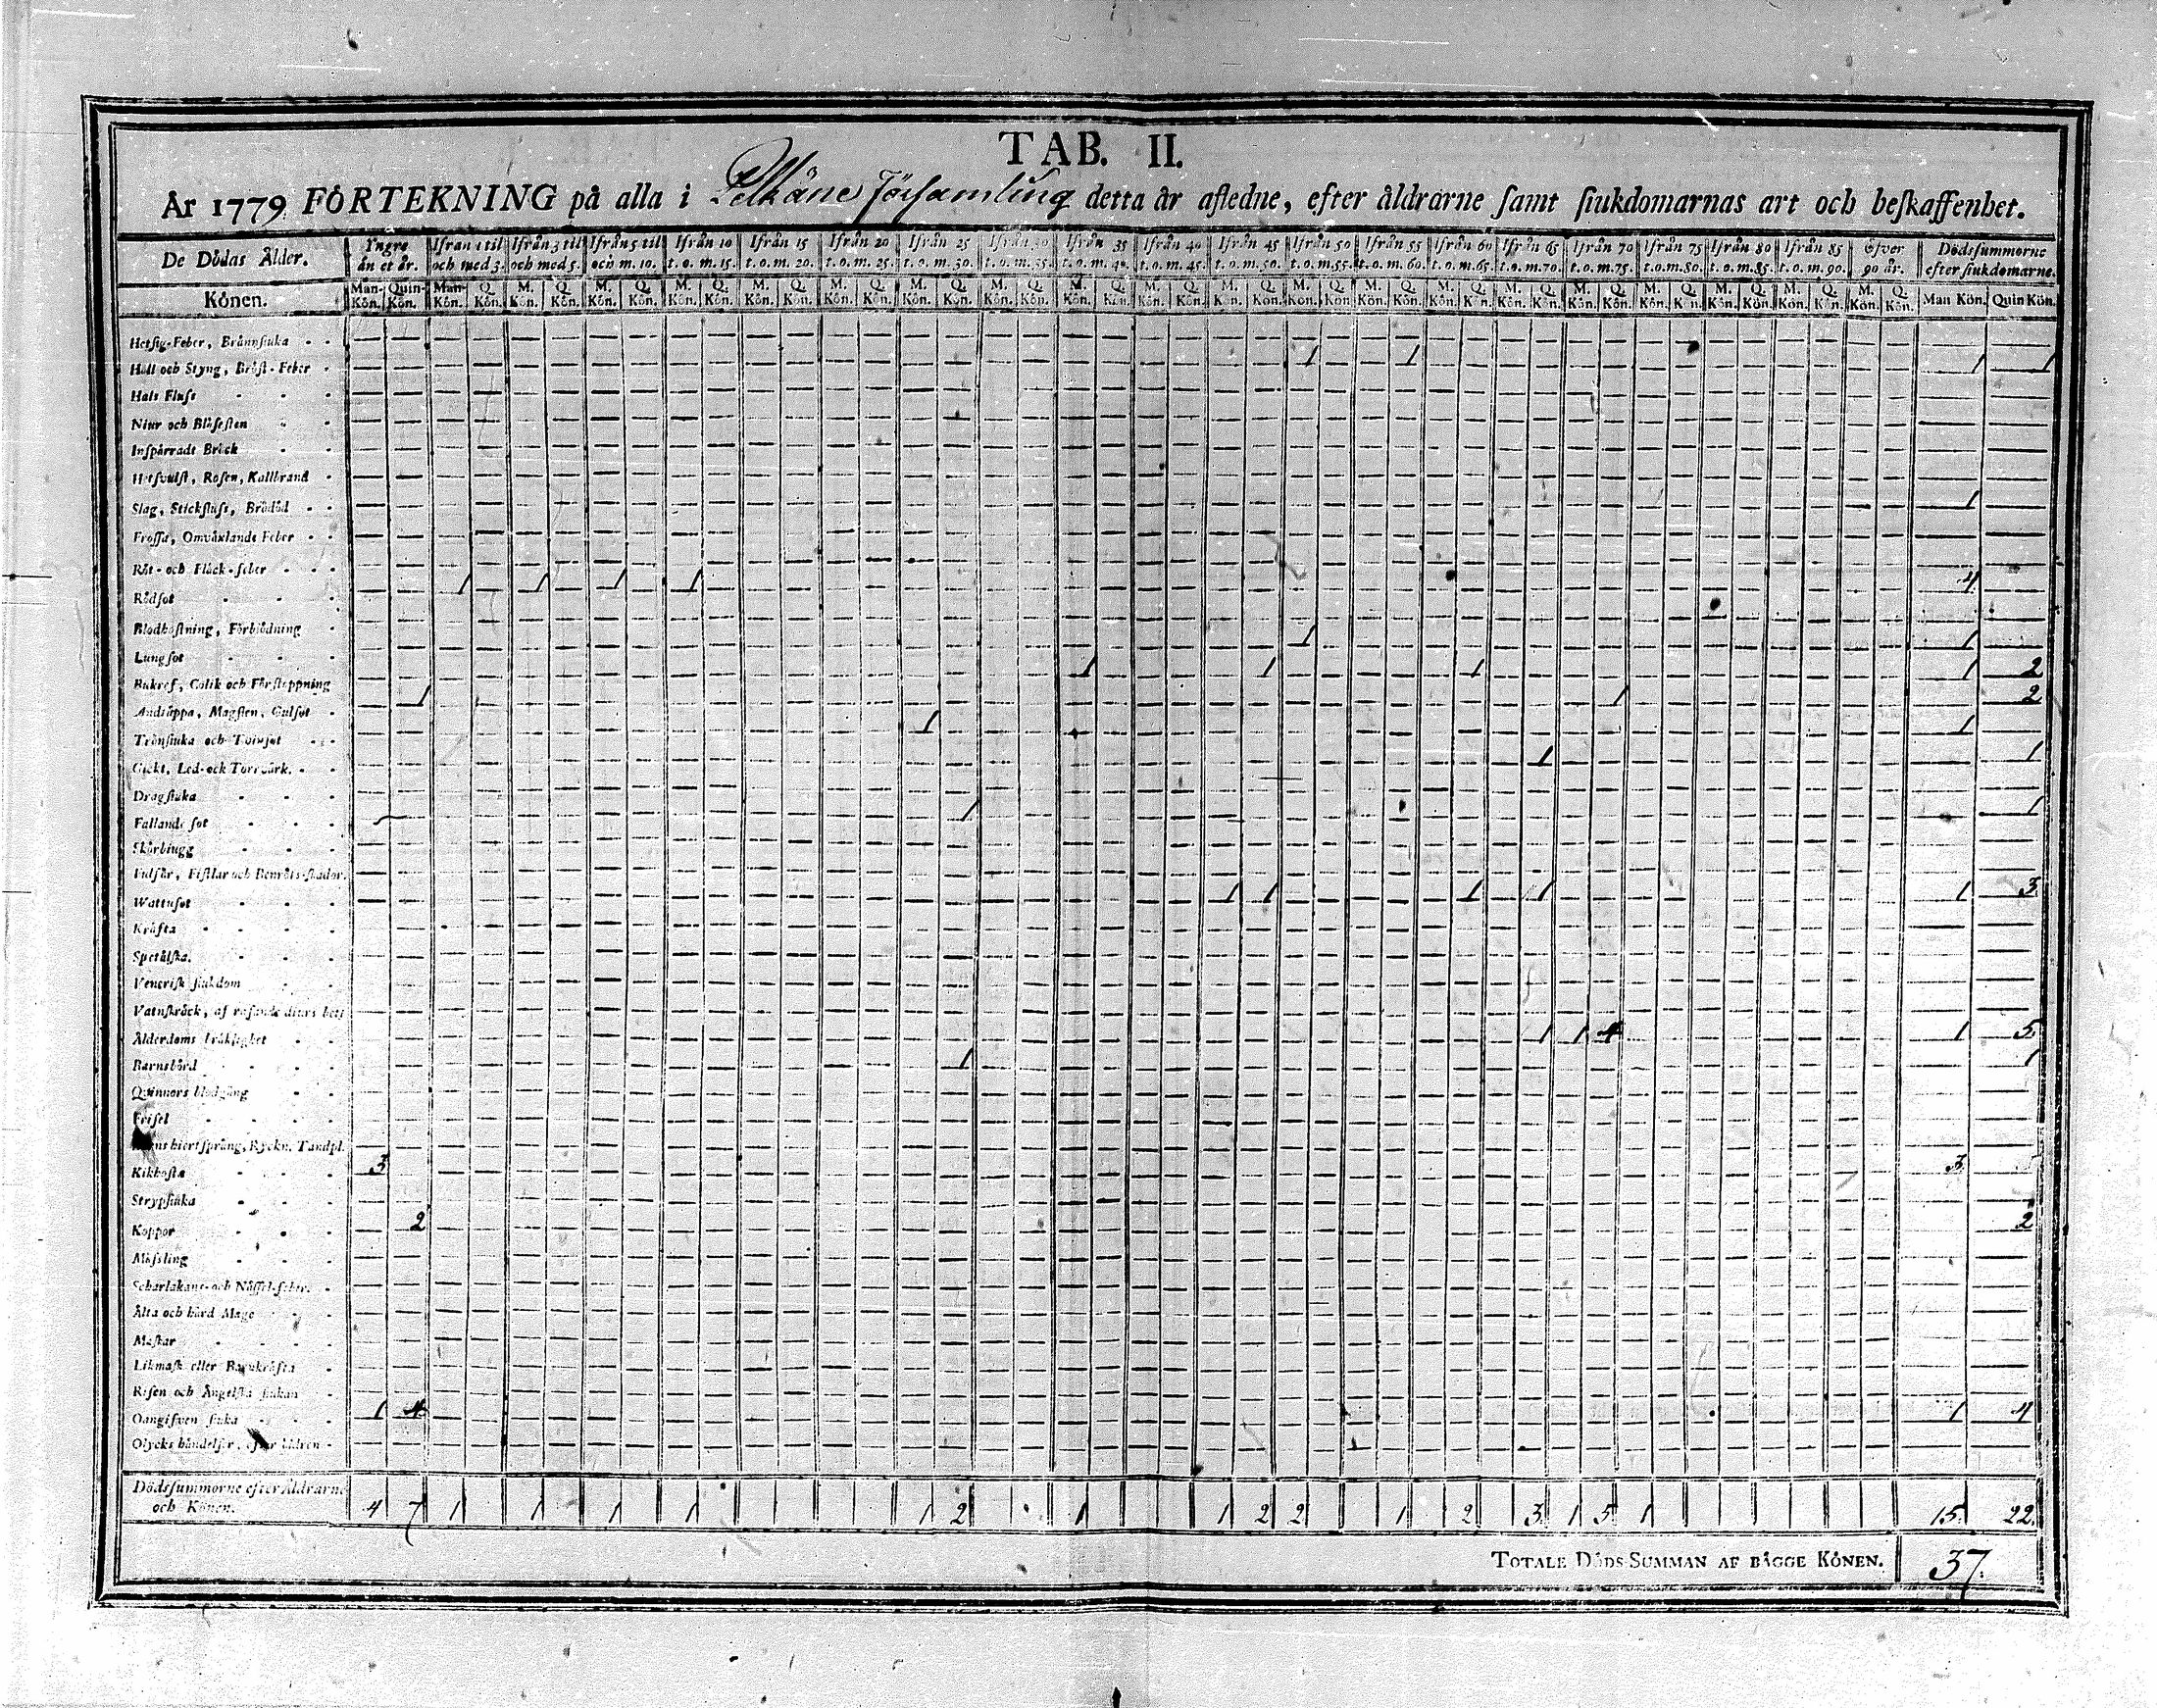 TAB. II.
År 1779 FÖRTEKNING på alla i Pelkäne Församling detta år afledne, efter åldrarne samt siukdomarnas art och beskaffenhet.
De Dödas Ålder. Yngre än et år. Ifrån 1 til och med 3. Ifrån 3 til och med 5. Ifrån 5 til och m. 10. Ifrån 10 t. o. m. 15. Ifrån 15 t. o. m. 20. Ifrån 20 t. o. m. 25. Ifrån 25 t. o. m. 30. Ifrån 30 t. o. m. 35. Ifrån 35 t. o. m. 40. Ifrån 40 t. o. m. 45. Ifrån 45 t. o. m. 50. Ifrån 50 t. o. m. 55. Ifrån 55 t. o. m. 60. Ifrån 60 t. o. m. 65. Ifrån 65 t. o. m. 70. Ifrån 70 t. o. m. 75. Ifrån 75 t. o. m. 80. Ifrån 80 t. o. m. 85. Ifrån 85 t. o. m. 90. Öfver 90 år. Dödssummorne efter siukdomarne.
Könen. Man-Kön. Quin-Kön. Man-Kön. Q. Kön. M. Kön. Q. Kön. M. Kön. Q. Kön. M. Kön. Q. Kön. M. Kön. Q. Kön. M. Kön. Q. Kön. M. Kön. Q. Kön. M. Kön. Q. Kön. M. Kön. Q. Kön. M. Kön. Q. Kön. M. Kön. Q. Kön. M. Kön. Q. Kön. M. Kön. Q. Kön. M. Kön. Q. Kön. M. Kön. Q. Kön. M. Kön. Q. Kön. M. Kön. Q. Kön. M. Kön. Q. Kön. M. Kön. Q. Kön. M. Kön. Q. Kön. Man Kön. Quin Kön.
Hetsig-Feber, Brännsiuka
Håll och Styng, Bröst-Feber 1 1 1 1
Hals Fluss
Niur och Blåsesten
Inspärradt Bråck
Hetsvulst, Rosen, Kallbrand
Slag, Stickfluss, Brådöd 1
Frossa, Omväxlande Feber
Röt- och Fläck-feber
Rödsot 1 1 1 1 4
Blodhostning, Förblödning
Lungsot 1 1
Bukref, Colik och Förstoppning 1 1 1 1 2
Andtäppa, Magsten, Gulsot 1 1 2
Trånsiuka och Tvinsot 1 1
Gickt, Led- och Torrvärk. 1 1
Dragsiuka
Fallande sot 1 1
Skörbiugg
Fulsår, Fistlar och Benröts-skador.
Wattusot 1 1 1 1 1 3
Kräfta
Spetälska.
Venerisk siukdom
Vatuskräck, af rasande diurs bett
Ålderdoms bräklighet 1 1 4 1 5
Barnsbörd 1 1
Quinnors blodgång
Frisel
hiertsprång, Ryckn. Tandpl.
Kikhosta 3 3
Strypsiuka
Koppor 2 2
Mässling
Scharlakans- och Nässel-feber.
Älta och hård Mage
Maskar
Likmask eller Barnkräfta
Risen och Ängelska siukan
Oangifven siuka 1 4 1 4
Olycks händelser, efter
Dödssummorne efter Åldrarne
och Könen. 4 7 1 1 1 1 1 2 1 1 2 2 1 2 3 1 5 1 15 22
TOTALE DÖDS-SUMMAN AF BÄGGE KÖNEN. 37.